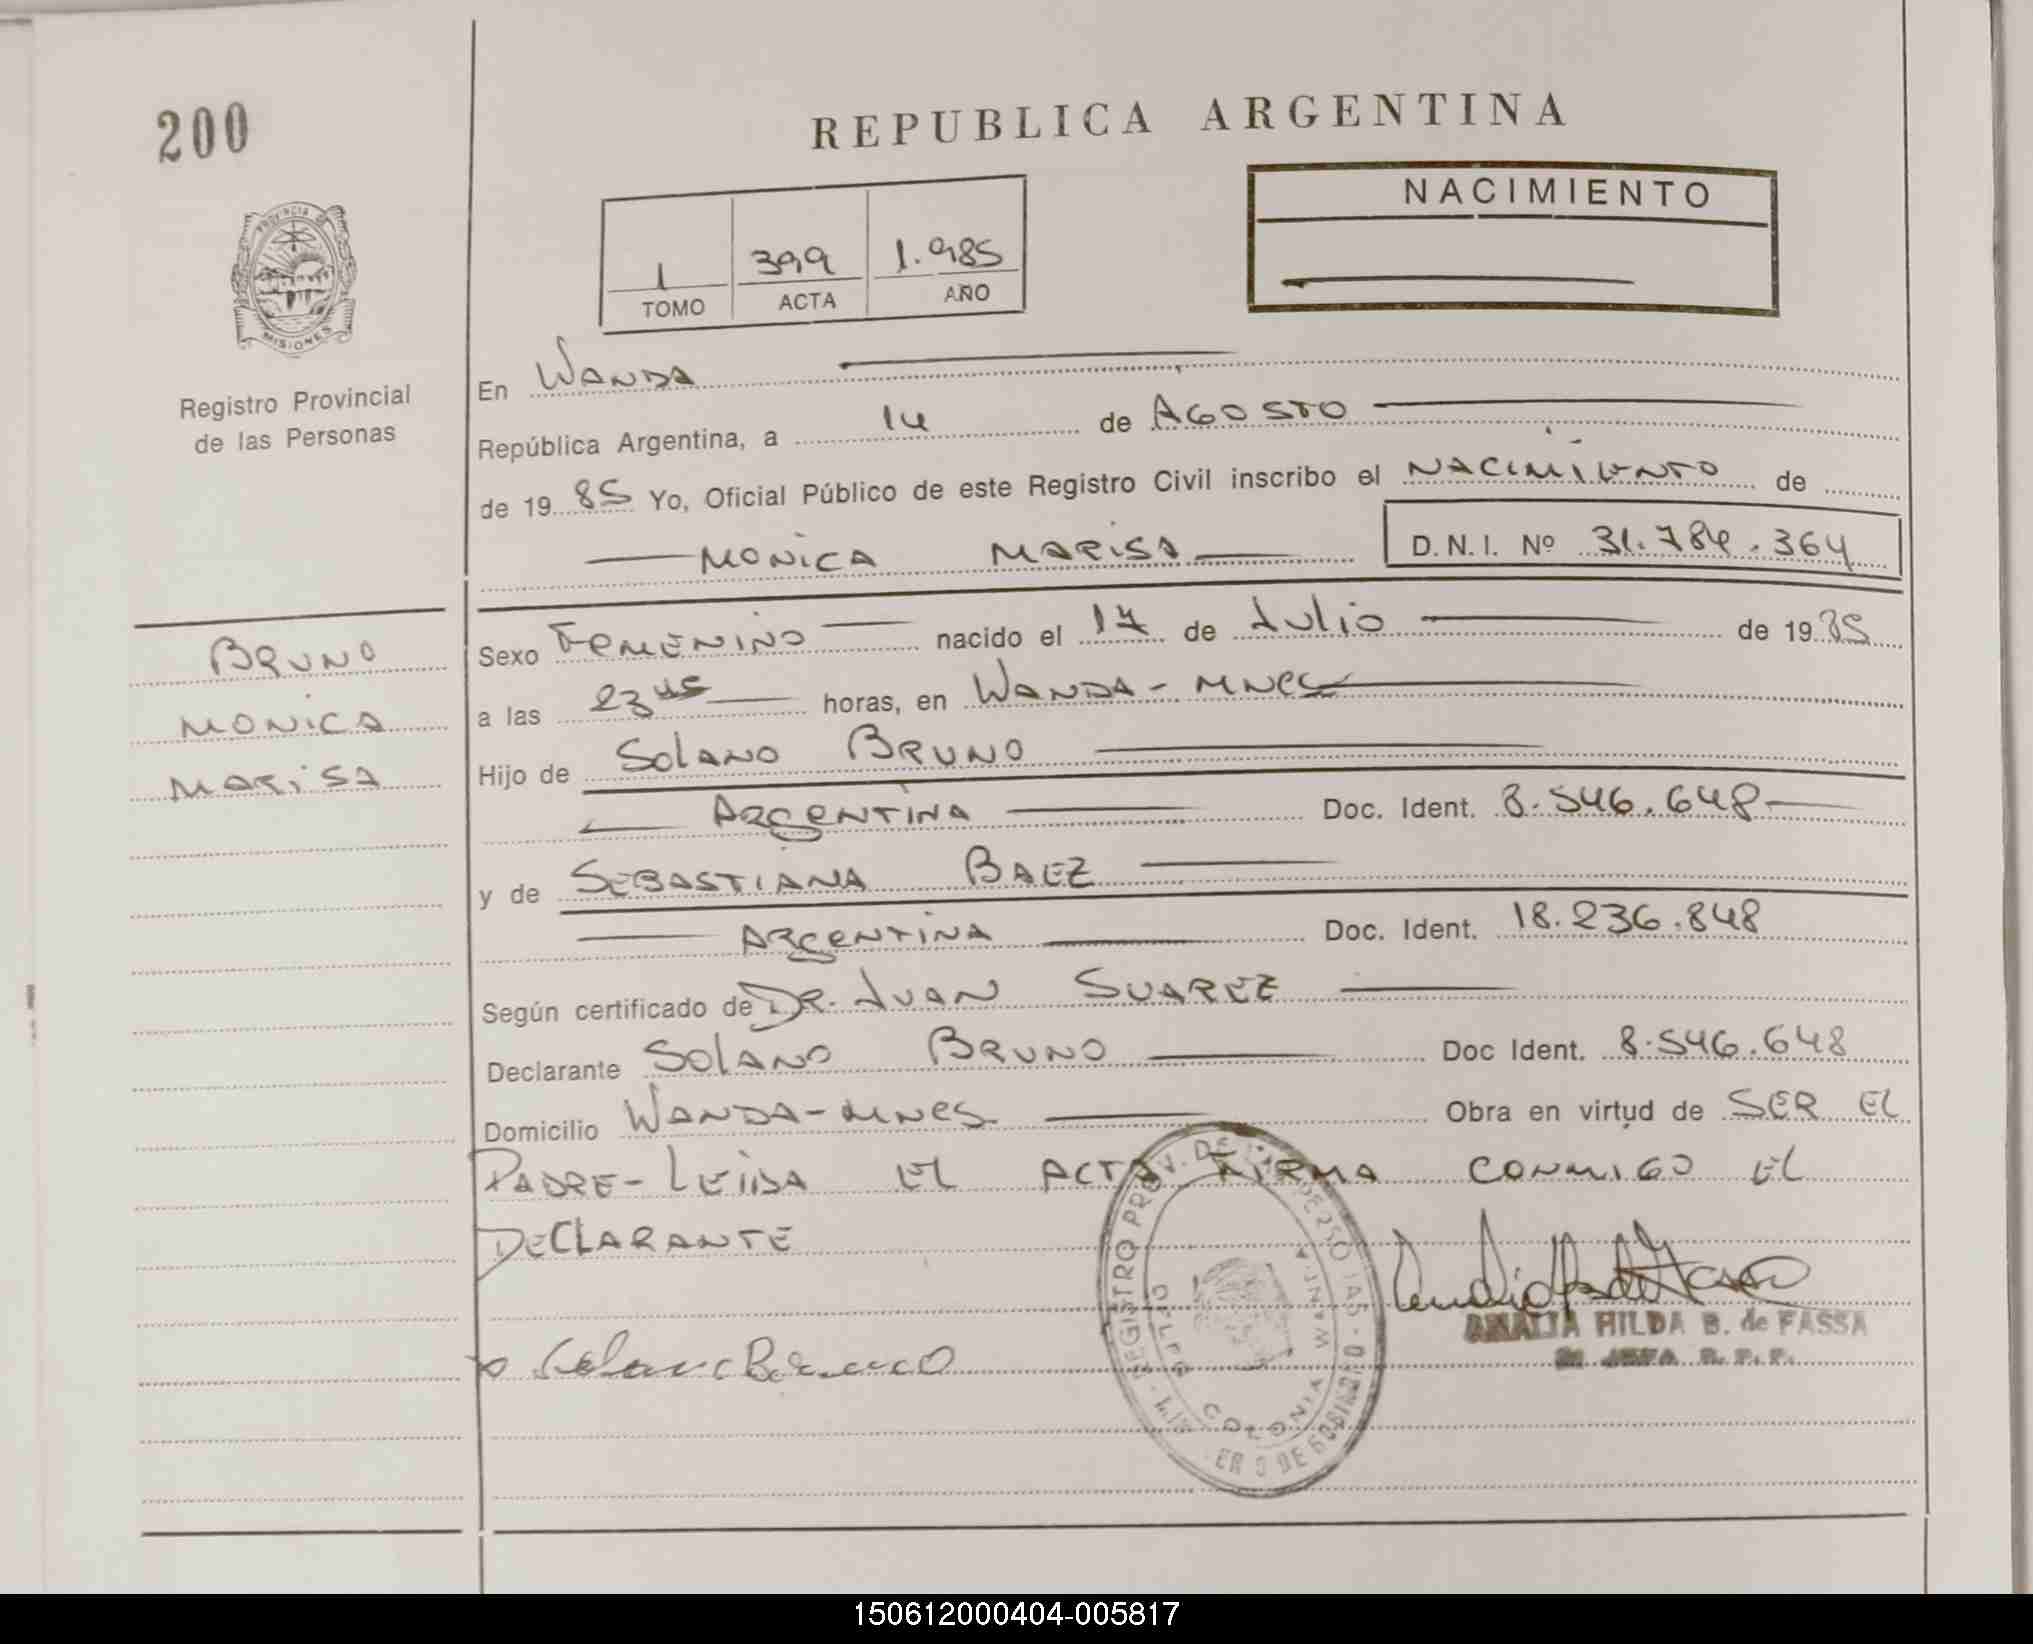 200
REPUBLICA ARGENTINA
NACIMIENTO
1 399 1.985
TOMO ACTA AÑO
PROVINCIA DE
MISIONES
Registro Provincial
de las Personas
En WANDA
República Argentina, a 14 de AGOSTO
de 1985 Yo, Oficial Público de este Registro Civil inscribo el NACIMIENTO de
MONICA MARISA D.N.I. Nº 31.784.364
BRUNO
MONICA
MARISA
Sexo FEMENINO nacido el 17 de Julio de 1985
a las 23 HS horas, en WANDA - MNES
Hijo de SOLANO BRUNO
ARGENTINA Doc. Ident. 8.546.648
y de SEBASTIANA BAEZ
ARGENTINA Doc. Ident. 18.236.848
Según certificado de DR. JUAN SUAREZ
Declarante SOLANO BRUNO Doc Ident. 8.546.648
Domicilio WANDA-MNES Obra en virtud de SER EL
PADRE - LEIDA EL ACTA FIRMA CONMIGO EL
DECLARANTE
REGISTRO PROV. DE
COLONIA WANDA
Solano Bruno
AMALIA HILDA B. de FASSA
JEFA R. P. P.
150612000404-005817